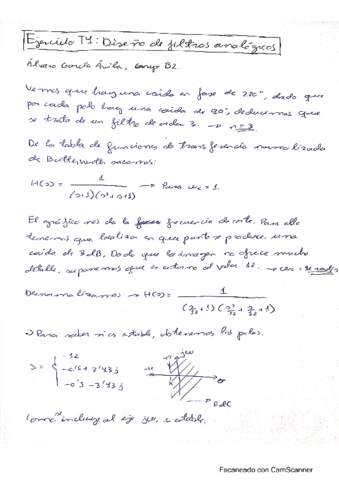 Ejercicio T4: Diseño de filtros analógicos
Álvaro García Ávila, Grupo B2.
Vemos que hay una caída en fase de 270°, dado que
por cada polo hay una caída de 90°, deducimos que
se trata de un filtro de orden 3. → n=3
De la tabla de funciones de transferencia normalizada
de Butterworth sacamos:
H(s) = 1 / (s+1)(s²+s+1) → Para ωc = 1.
El gráfico nos da la frecuencia de corte. Para ello
tenemos que localizar en que punto se produce una
caída de 3 dB. Dado que la imagen no ofrece mucho
detalle, suponemos que es entorno al valor 12. → ωc = 12 rad/s
Desnormalizamos → H(s) = 1 / (s/12 + 1)(s²/12 + s/12 + 1)
a) Para saber si es estable, obtenemos los polos.
-12
s = -0'5 + 3'43j
-0'5 - 3'43j
jω
σ
RdC
Como incluye al eje jω, es estable.
Escaneado con CamScanner